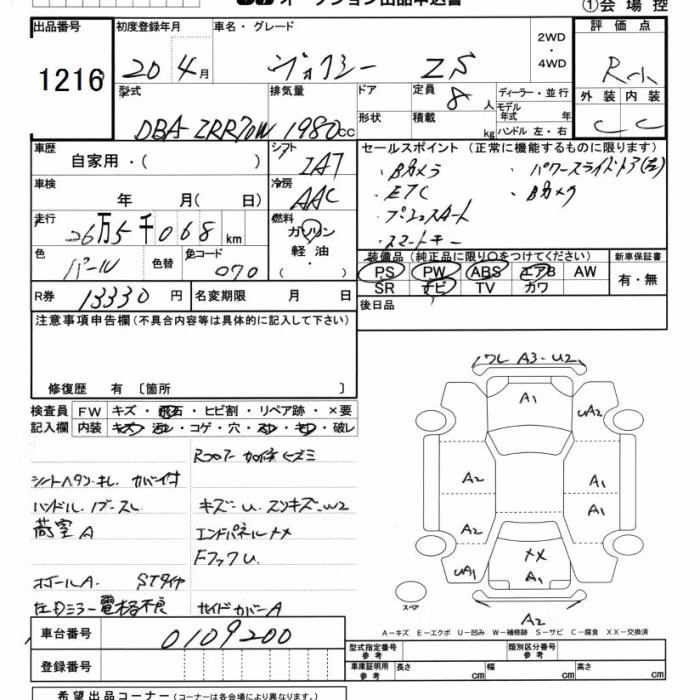 ①会場控
出品番号
1216
初度登録年月
20年4月
車名・グレード
ヴォクシー ZS
2WD
・
4WD
評価点
R-小
外装 内装
C C
型式
DBA-ZRR70W
排気量
1980cc
ドア
形状
定員
8人
積載
kg
ディーラー・並行
モデル
年式 年
ハンドル 左・右
車歴
自家用・( )
シフト
IAT
車検
年 月( 日)
冷房
AAC
走行
26万5千068km
燃料
ガソリン
軽油
・
色
パール
色替
色コード
070
R券
13330円
名変期限 月 日
セールスポイント (正常に機能するものに限ります)
・Bカメラ ・パワースライドドア(左)
・ETC ・Bカメラ
・プッシュスタート
・スマートキー
装備品(純正品に限り○をつけてください)
新車保証書
PS PW ABS エアB AW
SR ナビ TV カワ
有・無
後日品
注意事項申告欄(不具合内容等は具体的に記入して下さい)
修復歴 有 〔箇所 〕
検査員
記入欄
FW キズ・飛石・ヒビ割・リペア跡・×要
内装 キズ・汚レ・コゲ・穴・スレ・キレ・破レ
シートヘタリ キレ カバー付
ハンドル、ノブ スレ
荷室A
ホールA STタイヤ
左ドアミラー電格不良
キズ-U スリキズ-W2
エンドパネル××
FフックU
サイドカバーA
ワレ A3-U2
A1
UA2
A2
A1
A2
A1
××
UA1
A1
A2
スペア
A-キズ E-エクボ U-凹み W-補修跡 S-サビ C-腐食 XX-交換済
車台番号
0109200
登録番号
型式指定番号
参考
類別区分番号
参考
車庫証明用
参考
長さ cm
幅 cm
高さ cm
希望出品コーナー(コーナーは各会場により異なります。)